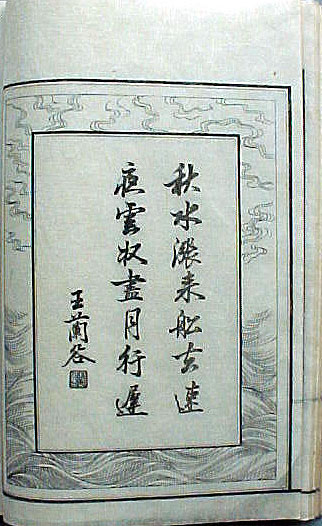 秋水漲来船去速
夜雲收盡月行遲
王蘭谷